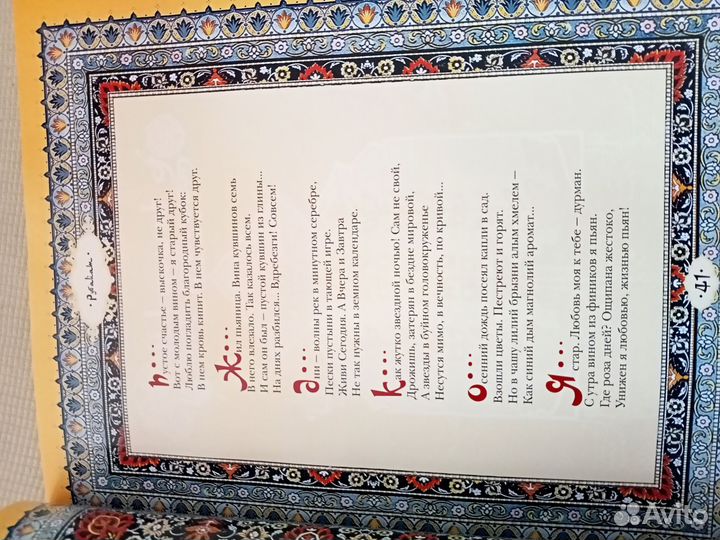 Рубаи
Пустое счастье – выскочка, не друг!
Вот с молодым вином – я старый друг!
Люблю погладить благородный кубок:
В нем кровь кипит. В нем чувствуется друг.
Жил пьяница. Вина кувшинов семь
В него влезало. Так казалось всем.
И сам он был – пустой кувшин из глины...
На днях разбился... Вдребезги! Совсем!
Дни – волны рек в минутном серебре,
Пески пустыни в тающей игре.
Живи Сегодня. А Вчера и Завтра
Не так нужны в земном календаре.
Как жутко звездной ночью! Сам не свой,
Дрожишь, затерян в бездне мировой.
А звезды в буйном головокруженье
Несутся мимо, в вечность, по кривой...
Осенний дождь посеял капли в сад.
Взошли цветы. Пестреют и горят.
Но в чашу лилий брызни алым хмелем –
Как синий дым магнолий аромат...
Я стар. Любовь моя к тебе – дурман.
С утра вином из фиников я пьян.
Где роза дней? Ощипана жестоко,
Унижен я любовью, жизнью пьян!
41
Avito